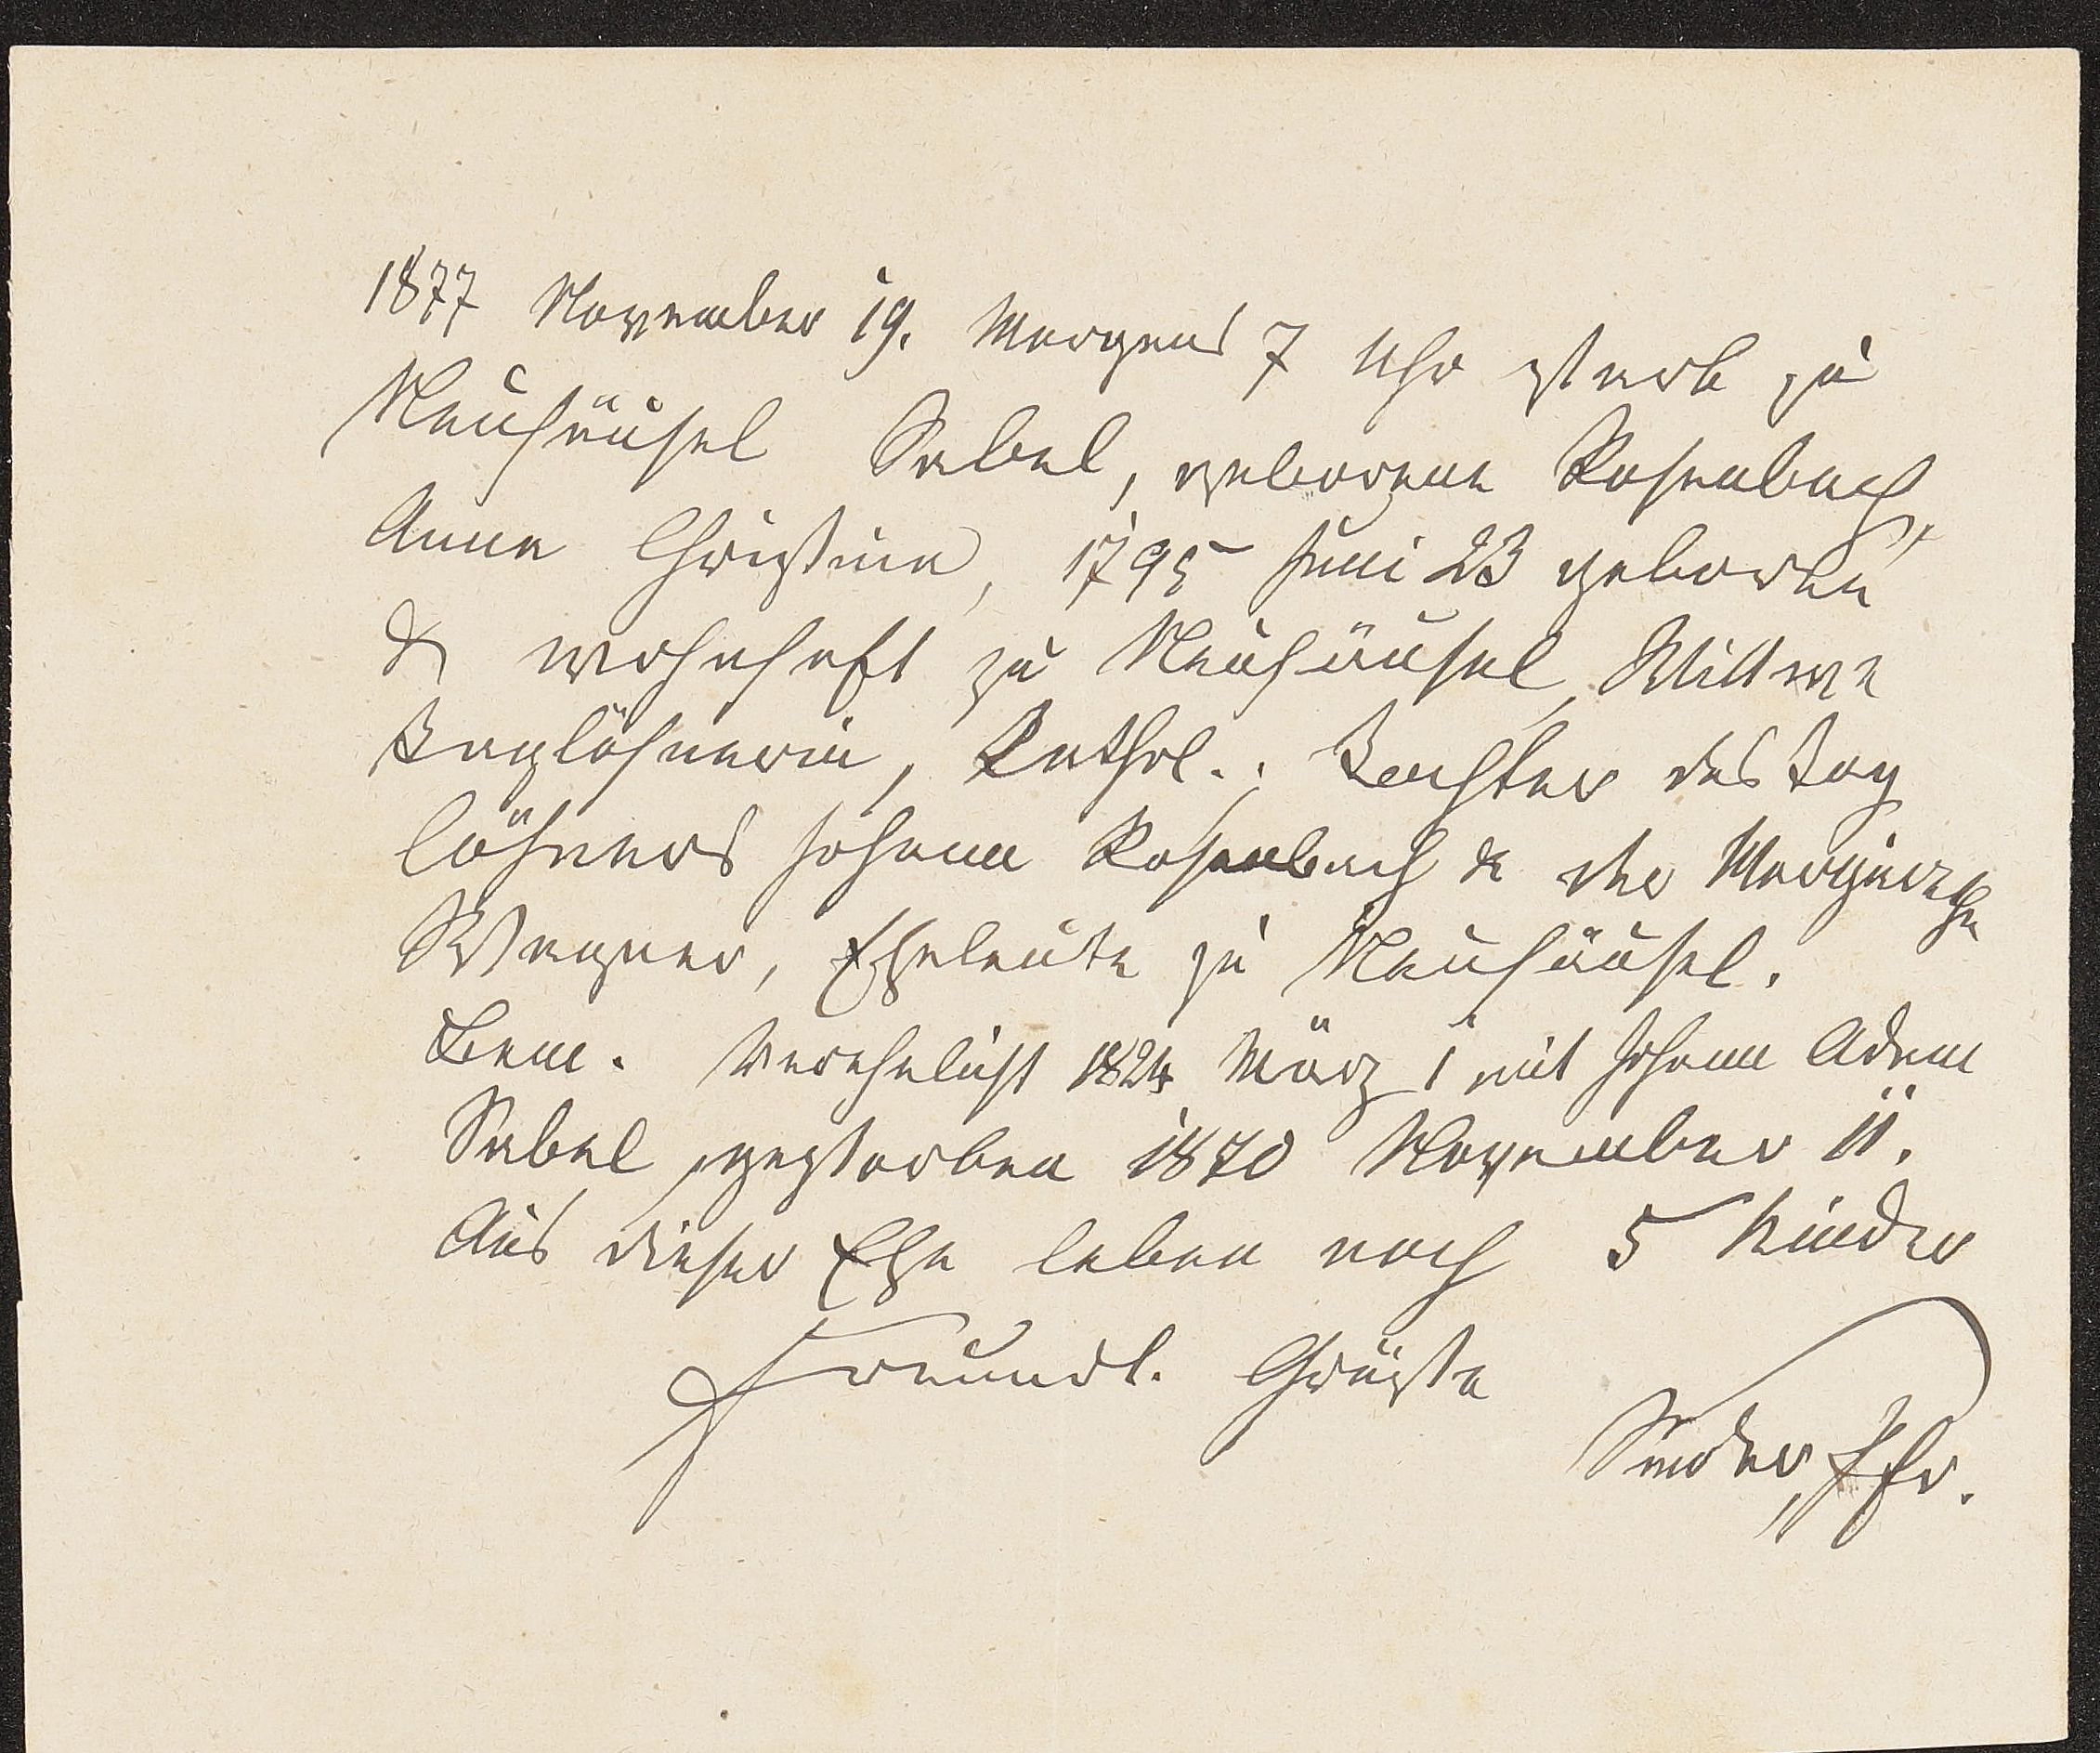 1877 November 19. Morgens 7 Uhr starb zu
Neuhäusel Sabel, geborene Rosenbach,
Anna Christina, 1795 Juni 23 geboren
& wohnhaft zu Neuhäusel, Wittwe
Taglöhnerin, Kathol.; Tochter des Tag
löhners Johann Rosenbach & der
Wagner, Eheleute zu Neuhäusel.
Bem. Verehelicht 1824 März 1 mit Johann Adam
Sabel, gestorben 1870 November 11.
Aus dieser Ehe leben noch 5 Kinder
Freundl. Grüße
Pfr.